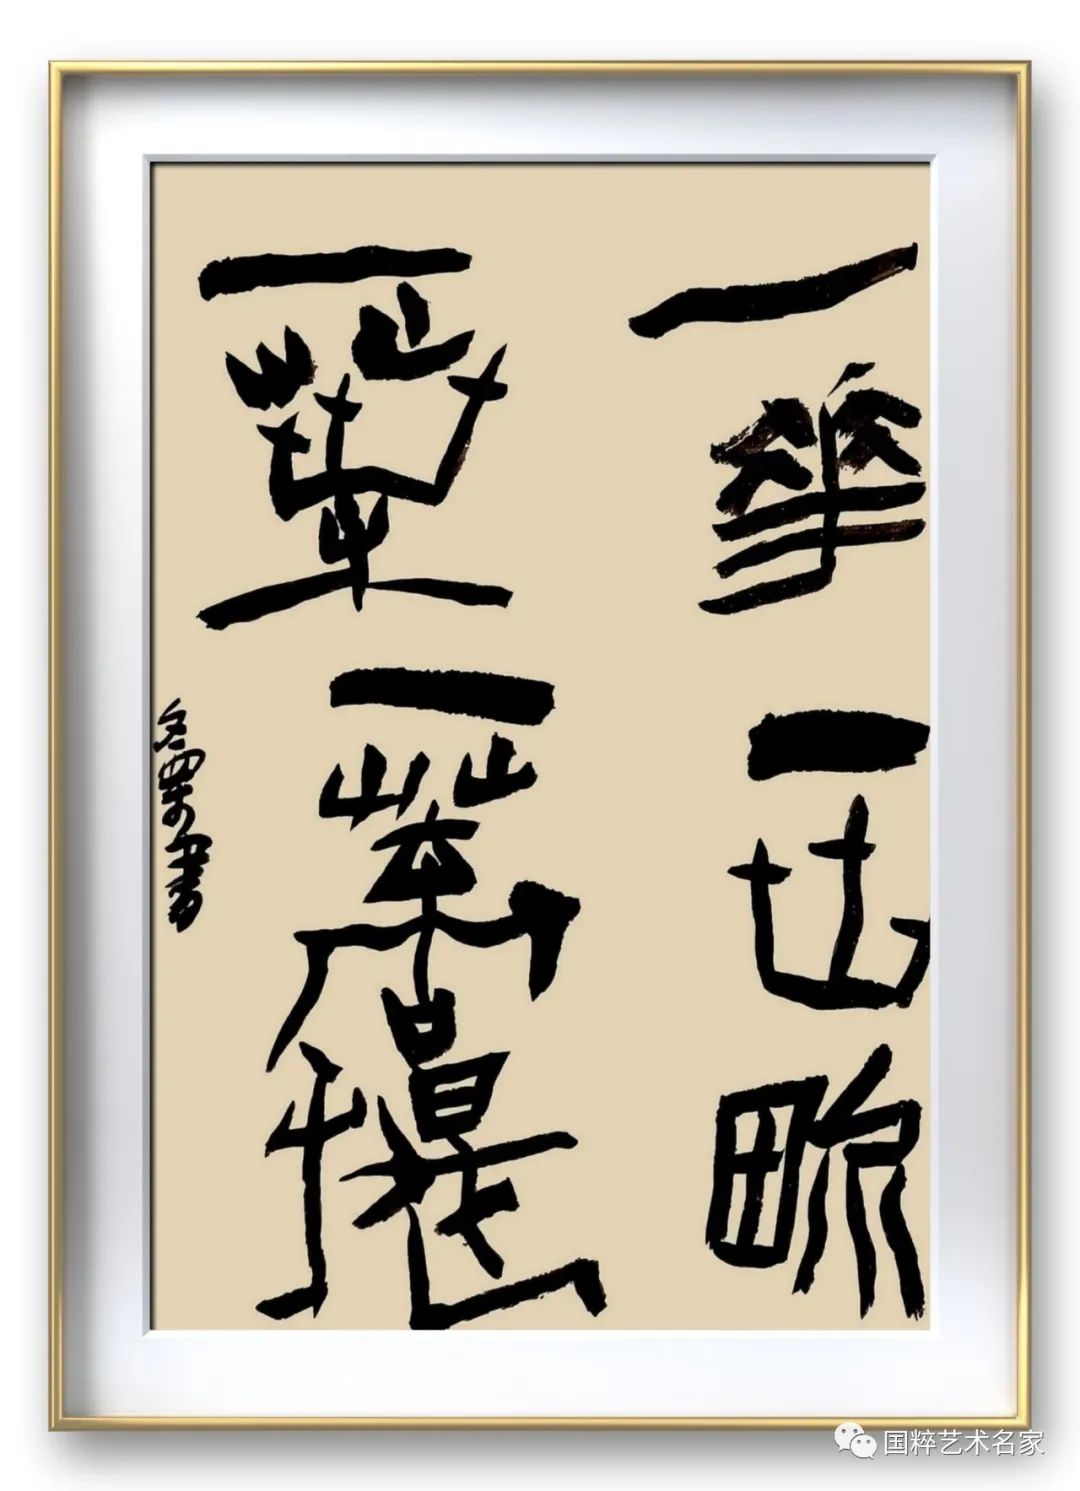 一華一世界
一葉一菩提
書
国粹艺术名家